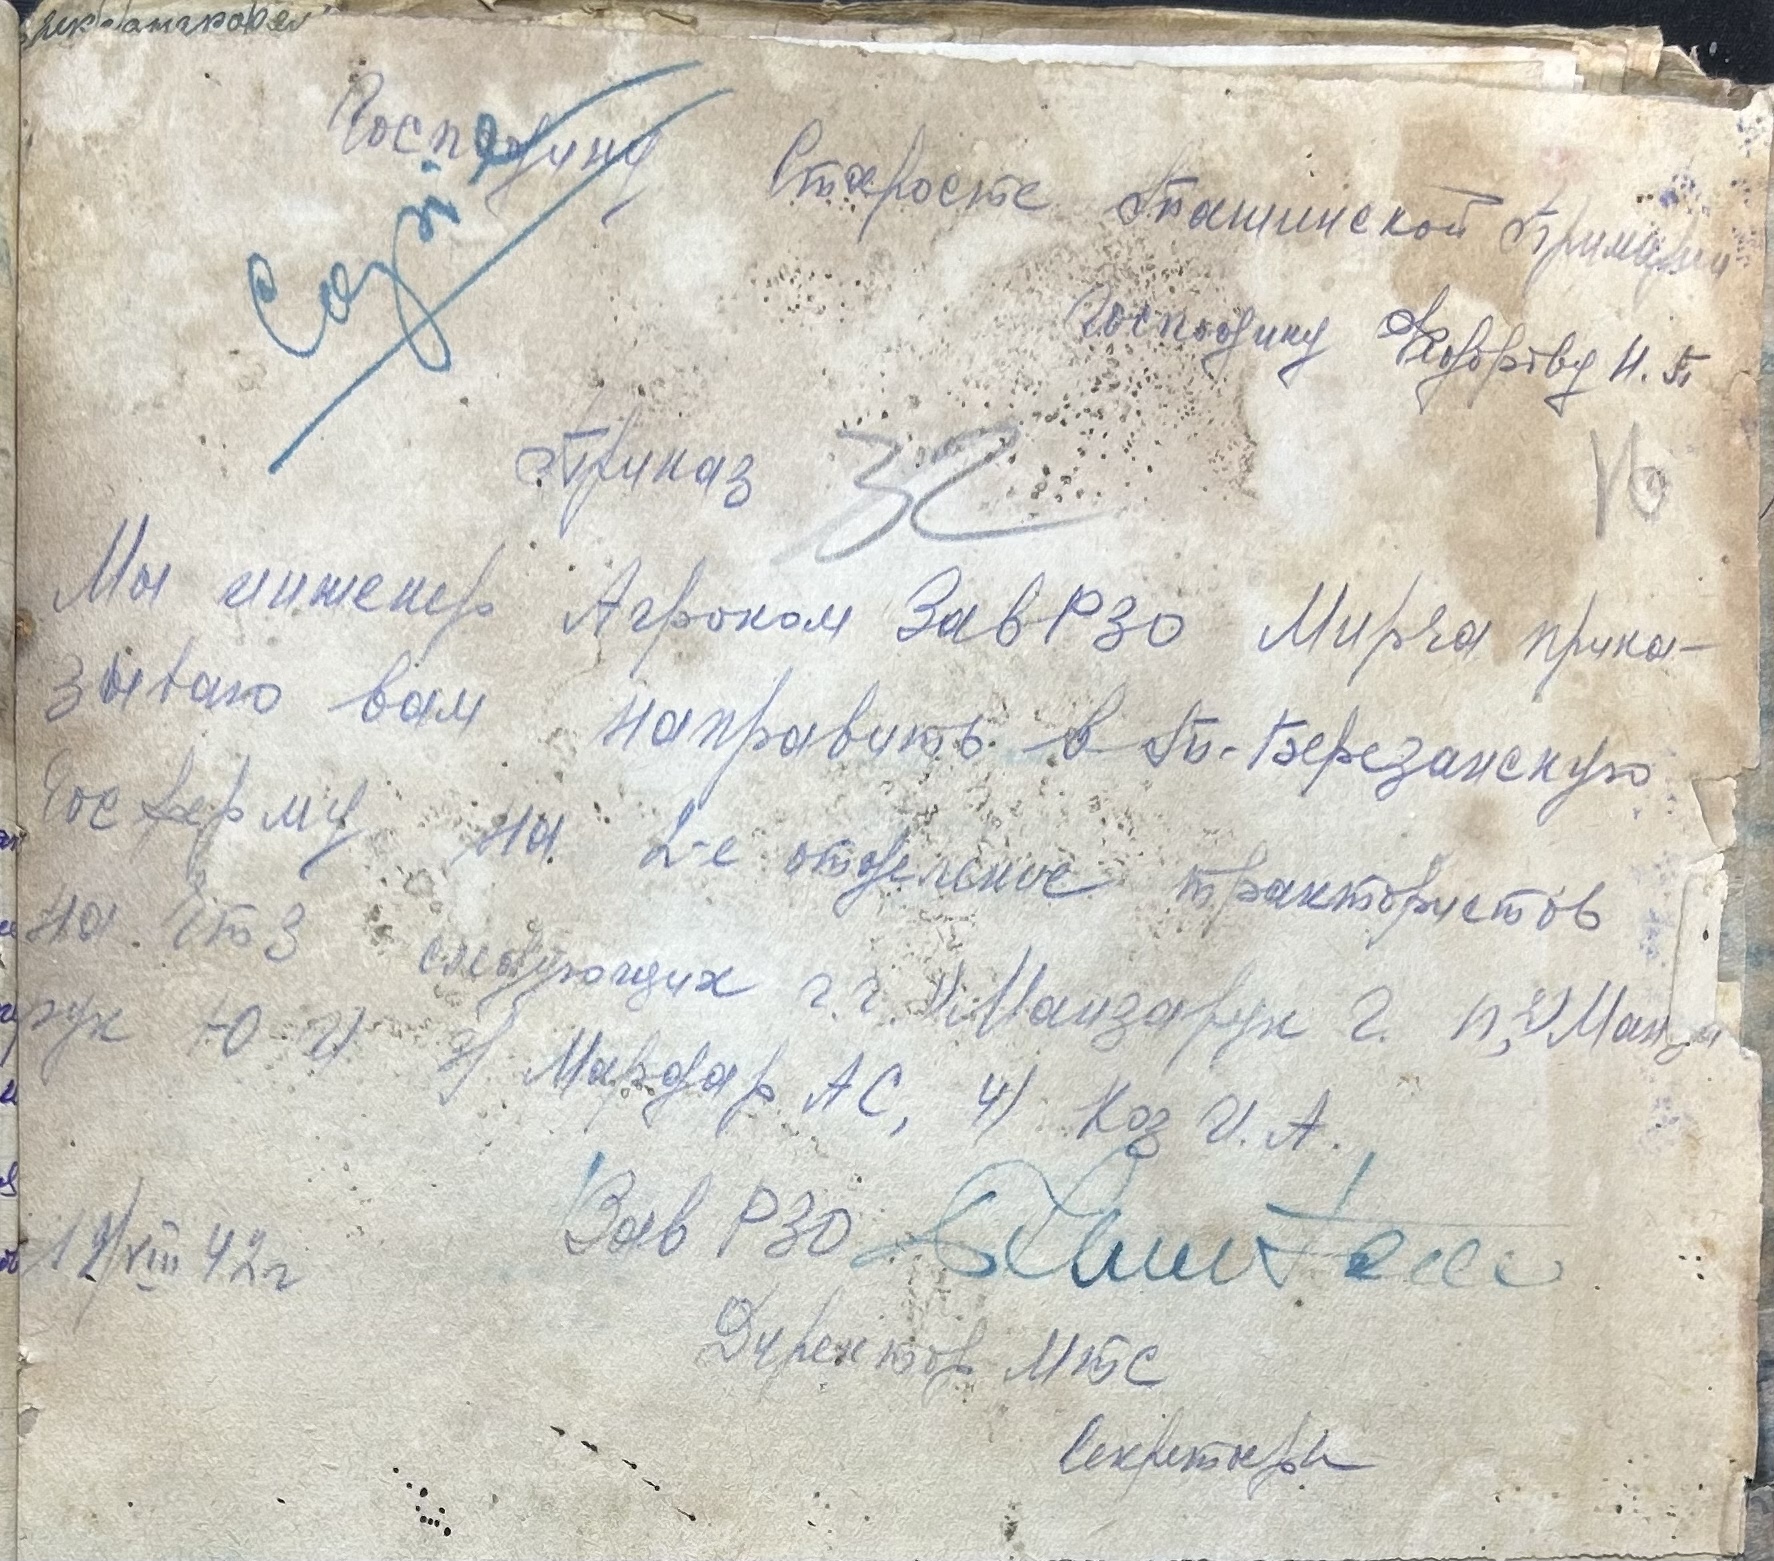 Copie
Господину Старосте Пашинской Примарии
Господину Федорову Н. П
Приказ
32
16
Мы инженер Агроном Зав РЗО Мирча прика-
зываю вам направить в П-Березанскую
Госферму на 2-е отделение трактористов
на ЧТЗ следующих г.г. 1) Манзарук Г. П, 2) Манза
рук Ю 3) Мардар АС, 4) Коз И. А.
Зав РЗО
12/VIII 42 г
Директор МТС
Секретарь